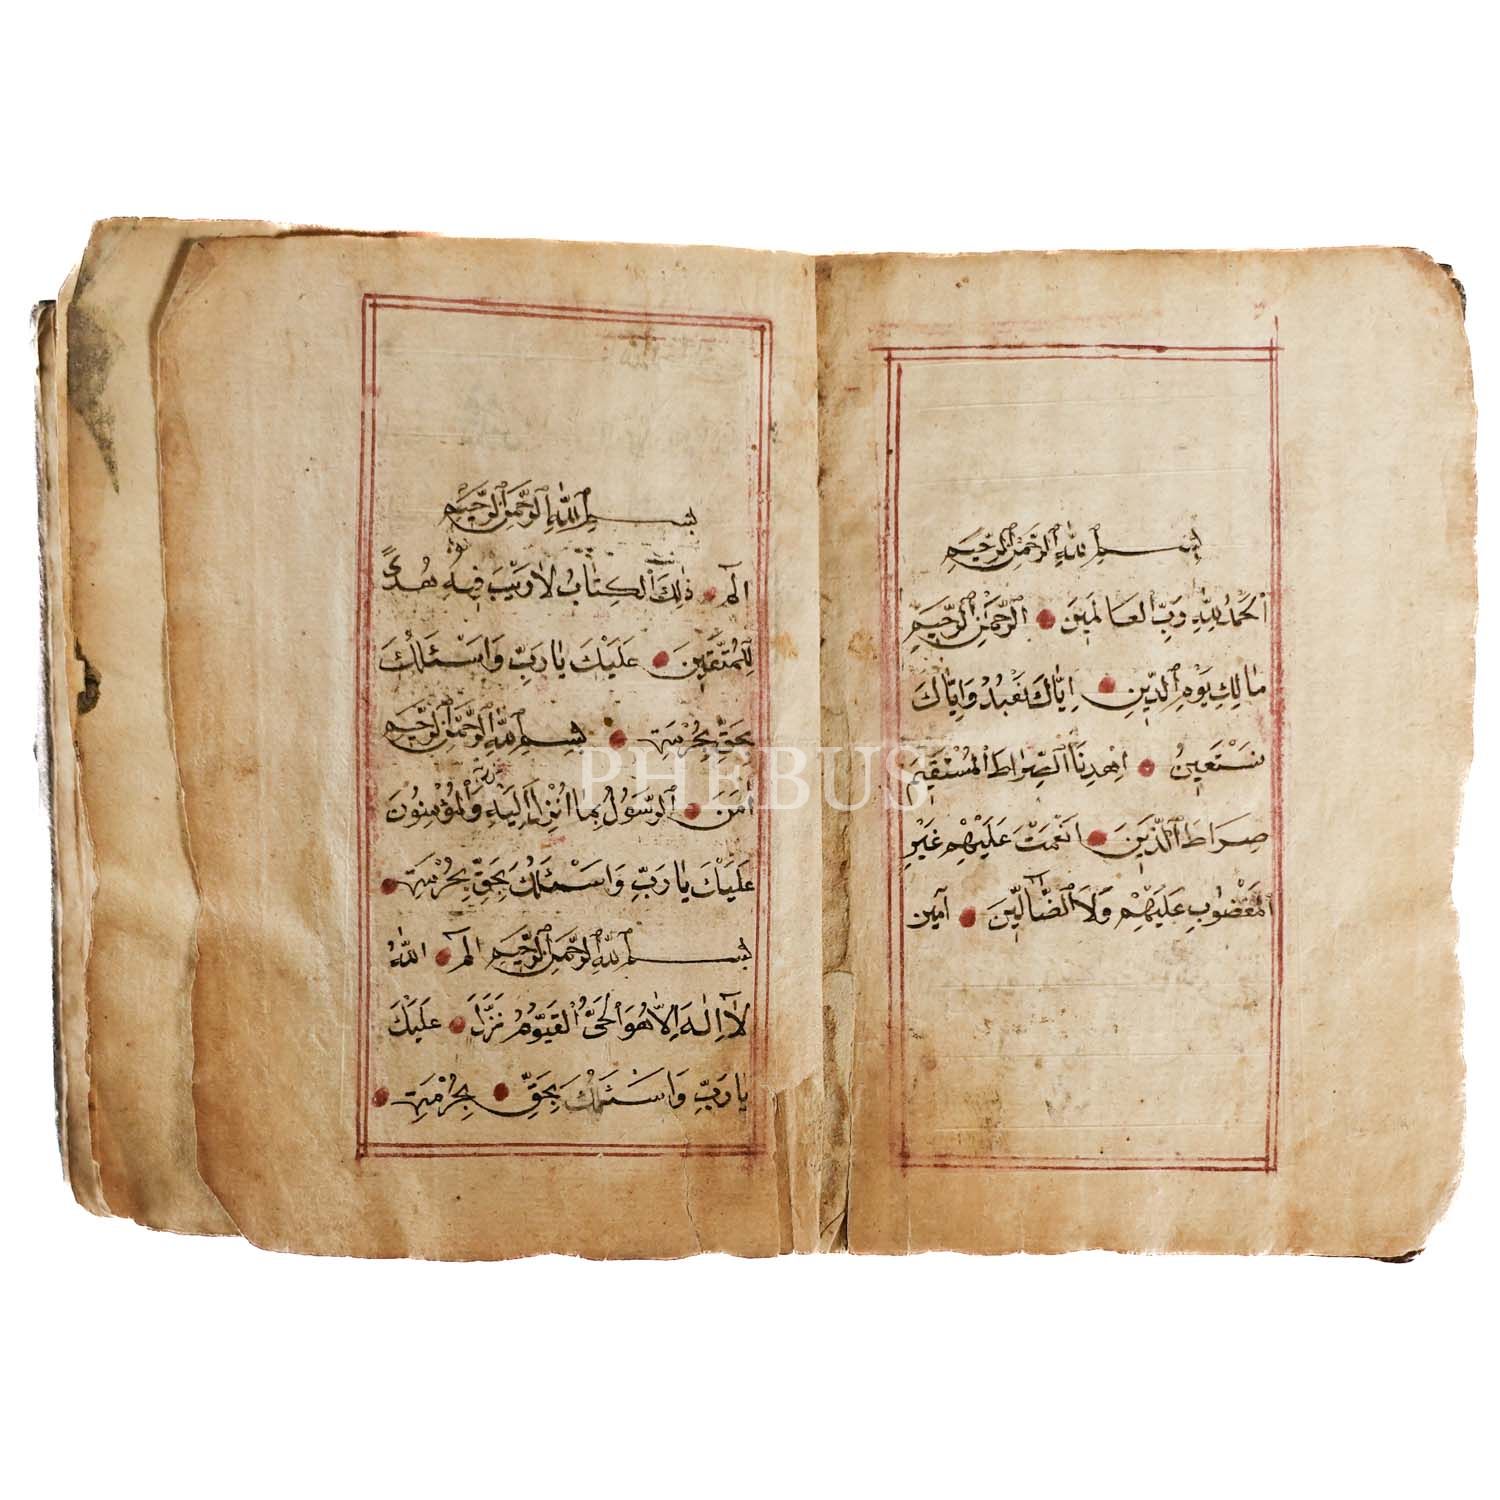 بسم الله الرحمن الرحيم
الحمد لله رب العالمين الرحمن الرحيم
مالك يوم الدين اياك نعبد واياك
نستعين اهدنا الصراط المستقيم
صراط الذين انعمت عليهم غير
المغضوب عليهم ولا الضالين آمين
بسم الله الرحمن الرحيم
الم ذلك الكتاب لا ريب فيه هدى
للمتقين عليك يا رب واسئلك
بحق بحرمة بسم الله الرحمن الرحيم
امن الرسول بما انزل اليه والمؤمنون
عليك يا رب واسئلك بحق بحرمة
بسم الله الرحمن الرحيم الم الله
لا اله الا هو الحي القيوم نزل عليك
يا رب واسئلك بحق بحرمة
PHEBUS